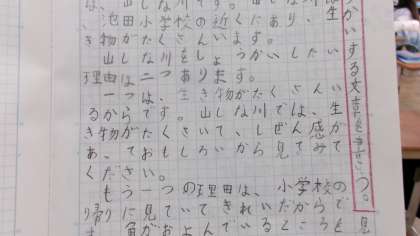 は、山しな川です。山しな川は
、池田小学校の近くにあり、生
き物がたくさんいます。
山しな川をしょうかいしたい
理由は二つあります。
一つは、生き物がたくさんい
るからです。山しな川では、生
き物がたくさんいて、しぜん感が
あ、ておもしろいから見てみて
ください。
もう一つの理由は、小学校の
帰りに見ていてきれいだからで
す。魚がおよんでいるところを見
かいする文章を書こう。